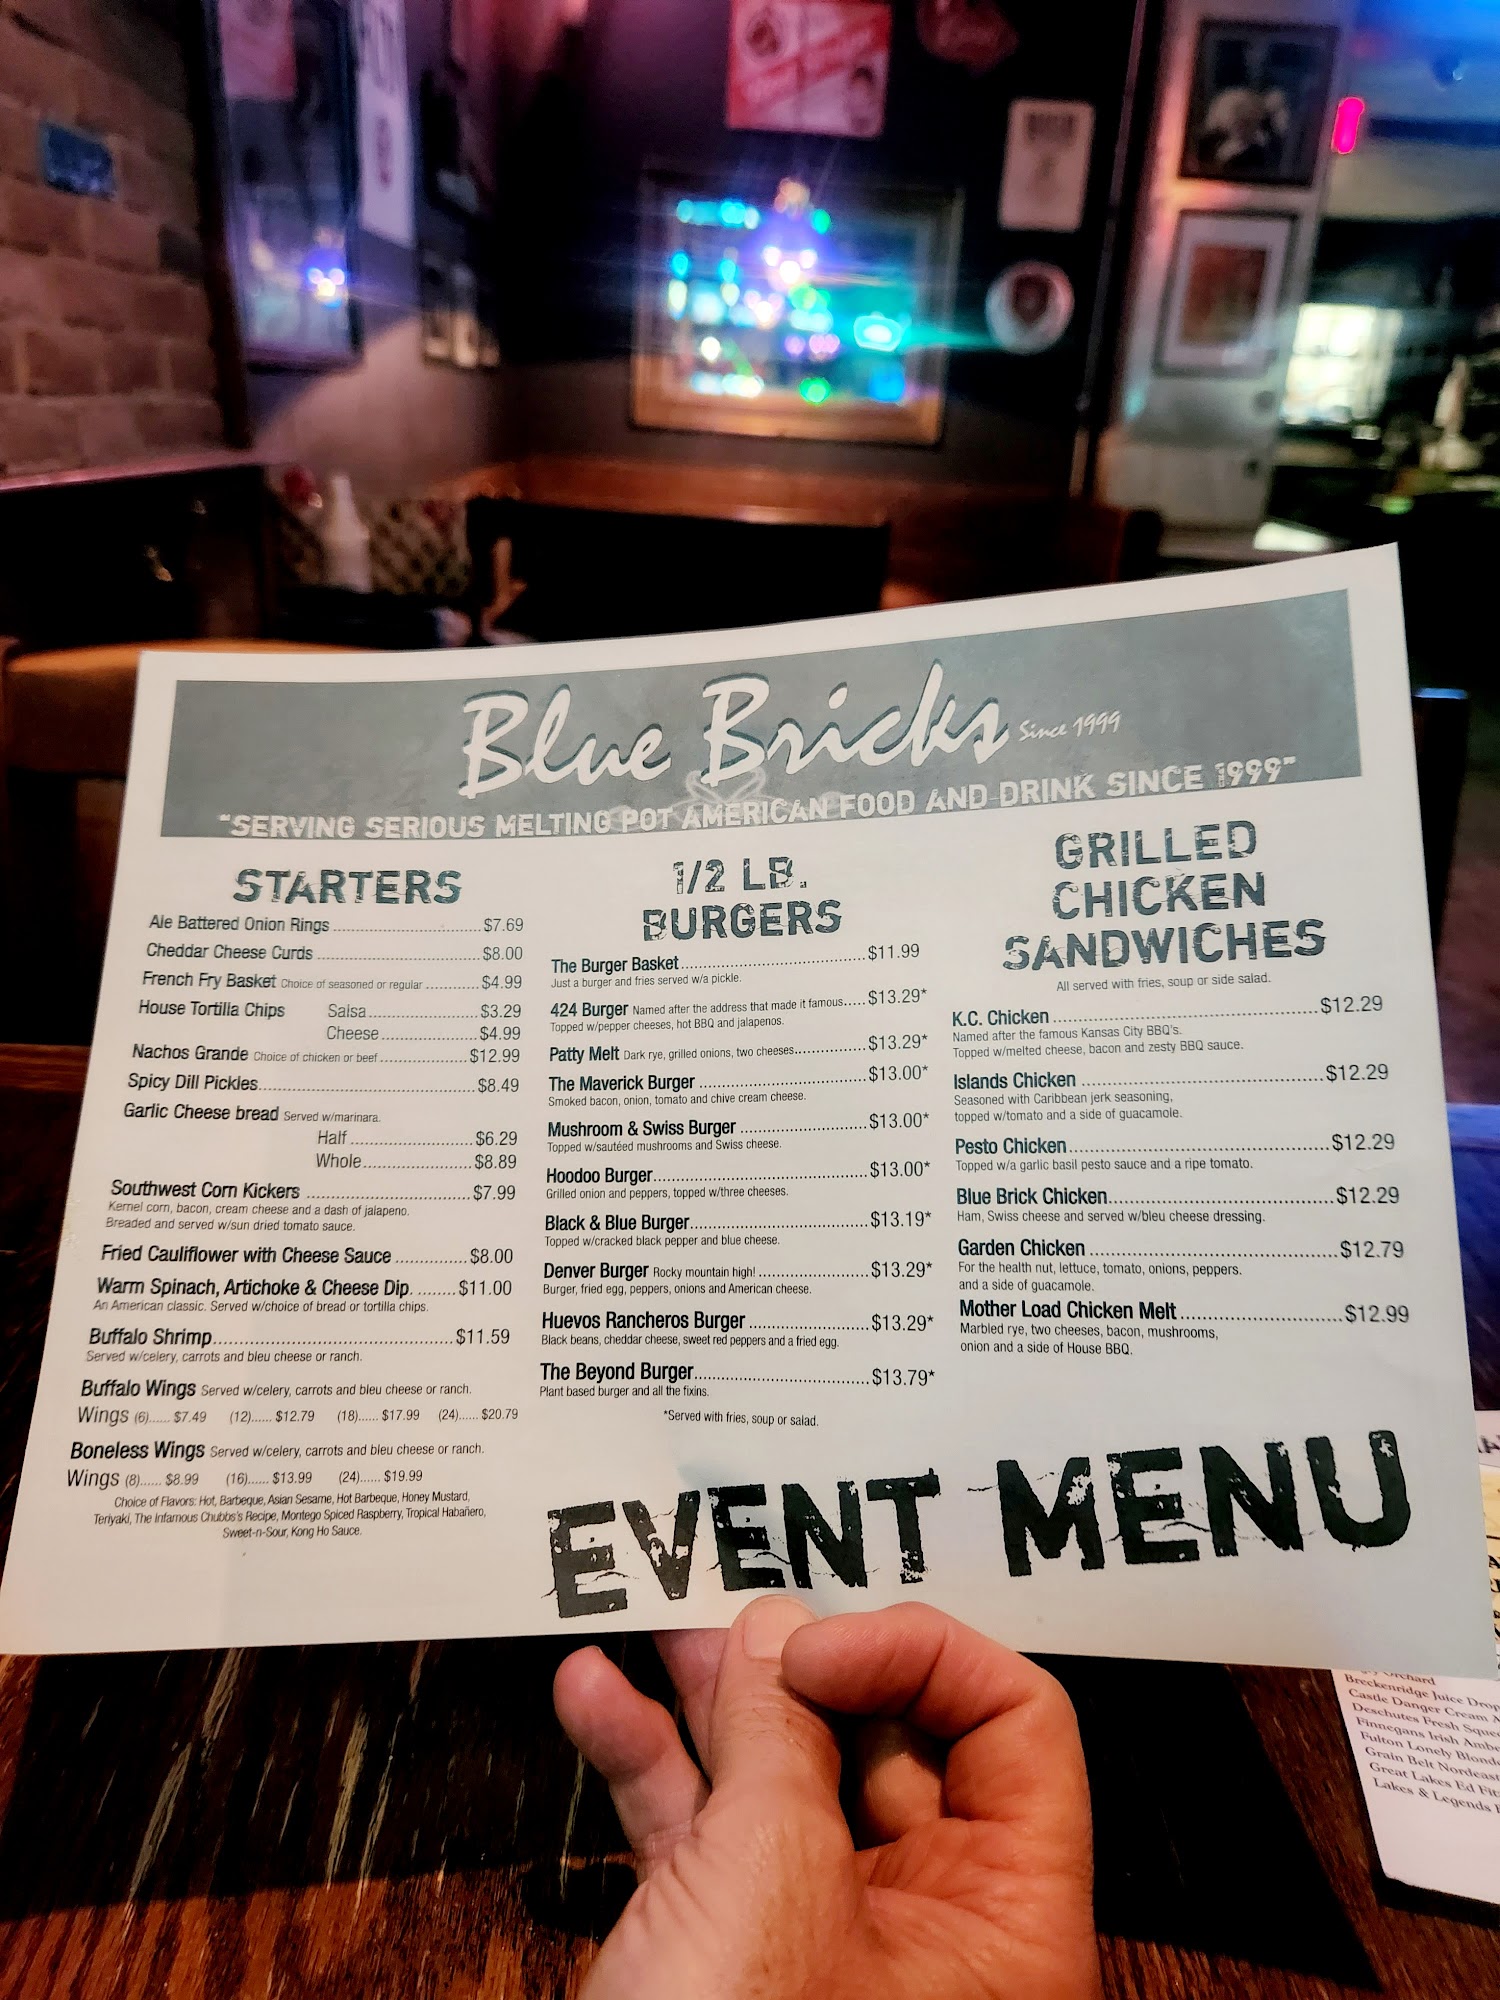 Blue Bricks Since 1999
"SERVING SERIOUS MELTING POT AMERICAN FOOD AND DRINK SINCE 1999"
STARTERS
Ale Battered Onion Rings $7.69
Cheddar Cheese Curds $8.00
French Fry Basket Choice of seasoned or regular $4.99
House Tortilla Chips Salsa $3.29
Cheese $4.99
Nachos Grande Choice of chicken or beef $12.99
Spicy Dill Pickles $8.49
Garlic Cheese bread Served w/marinara.
Half $6.29
Whole $8.89
Southwest Corn Kickers $7.99
Kernel corn, bacon, cream cheese and a dash of jalapeno.
Breaded and served w/sun dried tomato sauce.
Fried Cauliflower with Cheese Sauce $8.00
Warm Spinach, Artichoke & Cheese Dip. $11.00
An American classic. Served w/choice of bread or tortilla chips.
Buffalo Shrimp $11.59
Served w/celery, carrots and bleu cheese or ranch.
Buffalo Wings Served w/celery, carrots and bleu cheese or ranch.
Wings (6)...... $7.49 (12)...... $12.79 (18)...... $17.99 (24)...... $20.79
Boneless Wings Served w/celery, carrots and bleu cheese or ranch.
Wings (8)...... $8.99 (16)...... $13.99 (24)...... $19.99
Choice of Flavors: Hot, Barbeque, Asian Sesame, Hot Barbeque, Honey Mustard,
Teriyaki, The Infamous Chubbs's Recipe, Montego Spiced Raspberry, Tropical Habañero,
Sweet-n-Sour, Kong Ho Sauce.
1/2 LB.
BURGERS
The Burger Basket $11.99
Just a burger and fries served w/a pickle.
424 Burger Named after the address that made it famous..... $13.29*
Topped w/pepper cheeses, hot BBQ and jalapenos.
Patty Melt Dark rye, grilled onions, two cheeses $13.29*
The Maverick Burger $13.00*
Smoked bacon, onion, tomato and chive cream cheese.
Mushroom & Swiss Burger $13.00*
Topped w/sautéed mushrooms and Swiss cheese.
Hoodoo Burger $13.00*
Grilled onion and peppers, topped w/three cheeses.
Black & Blue Burger $13.19*
Topped w/cracked black pepper and blue cheese.
Denver Burger Rocky mountain high! $13.29*
Burger, fried egg, peppers, onions and American cheese.
Huevos Rancheros Burger $13.29*
Black beans, cheddar cheese, sweet red peppers and a fried egg.
The Beyond Burger $13.79*
Plant based burger and all the fixins.
*Served with fries, soup or salad.
GRILLED
CHICKEN
SANDWICHES
All served with fries, soup or side salad.
K.C. Chicken $12.29
Named after the famous Kansas City BBQ's.
Topped w/melted cheese, bacon and zesty BBQ sauce.
Islands Chicken $12.29
Seasoned with Caribbean jerk seasoning,
topped w/tomato and a side of guacamole.
Pesto Chicken $12.29
Topped w/a garlic basil pesto sauce and a ripe tomato.
Blue Brick Chicken $12.29
Ham, Swiss cheese and served w/bleu cheese dressing.
Garden Chicken $12.79
For the health nut, lettuce, tomato, onions, peppers.
and a side of guacamole.
Mother Load Chicken Melt $12.99
Marbled rye, two cheeses, bacon, mushrooms,
onion and a side of House BBQ.
EVENT MENU
Orchard
Breckenridge Juice Drop
Castle Danger Cream
Deschutes Fresh
Finnegans Irish
Fulton Lonely
Grain Belt
Great Lakes Ed
Lakes & Legends